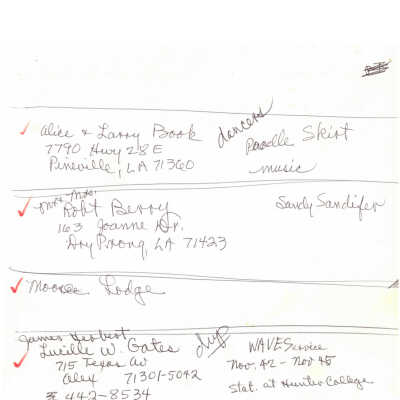 Alice & Larry Book dancers Poodle Skirt
7790 Hwy 28 E
Pineville, LA 71360 music
Mr & Mrs.
Robt Berry Sandy Sandifer
163 Joanne Dr.
Dry Prong, LA 71423
Moose Lodge
James Herbert
Lucille W. Gates WAVE Service
715 Texas Av Nov. 42 - Nov 45
Alex 71301-5042
Stat. at Hunter College
442-8534